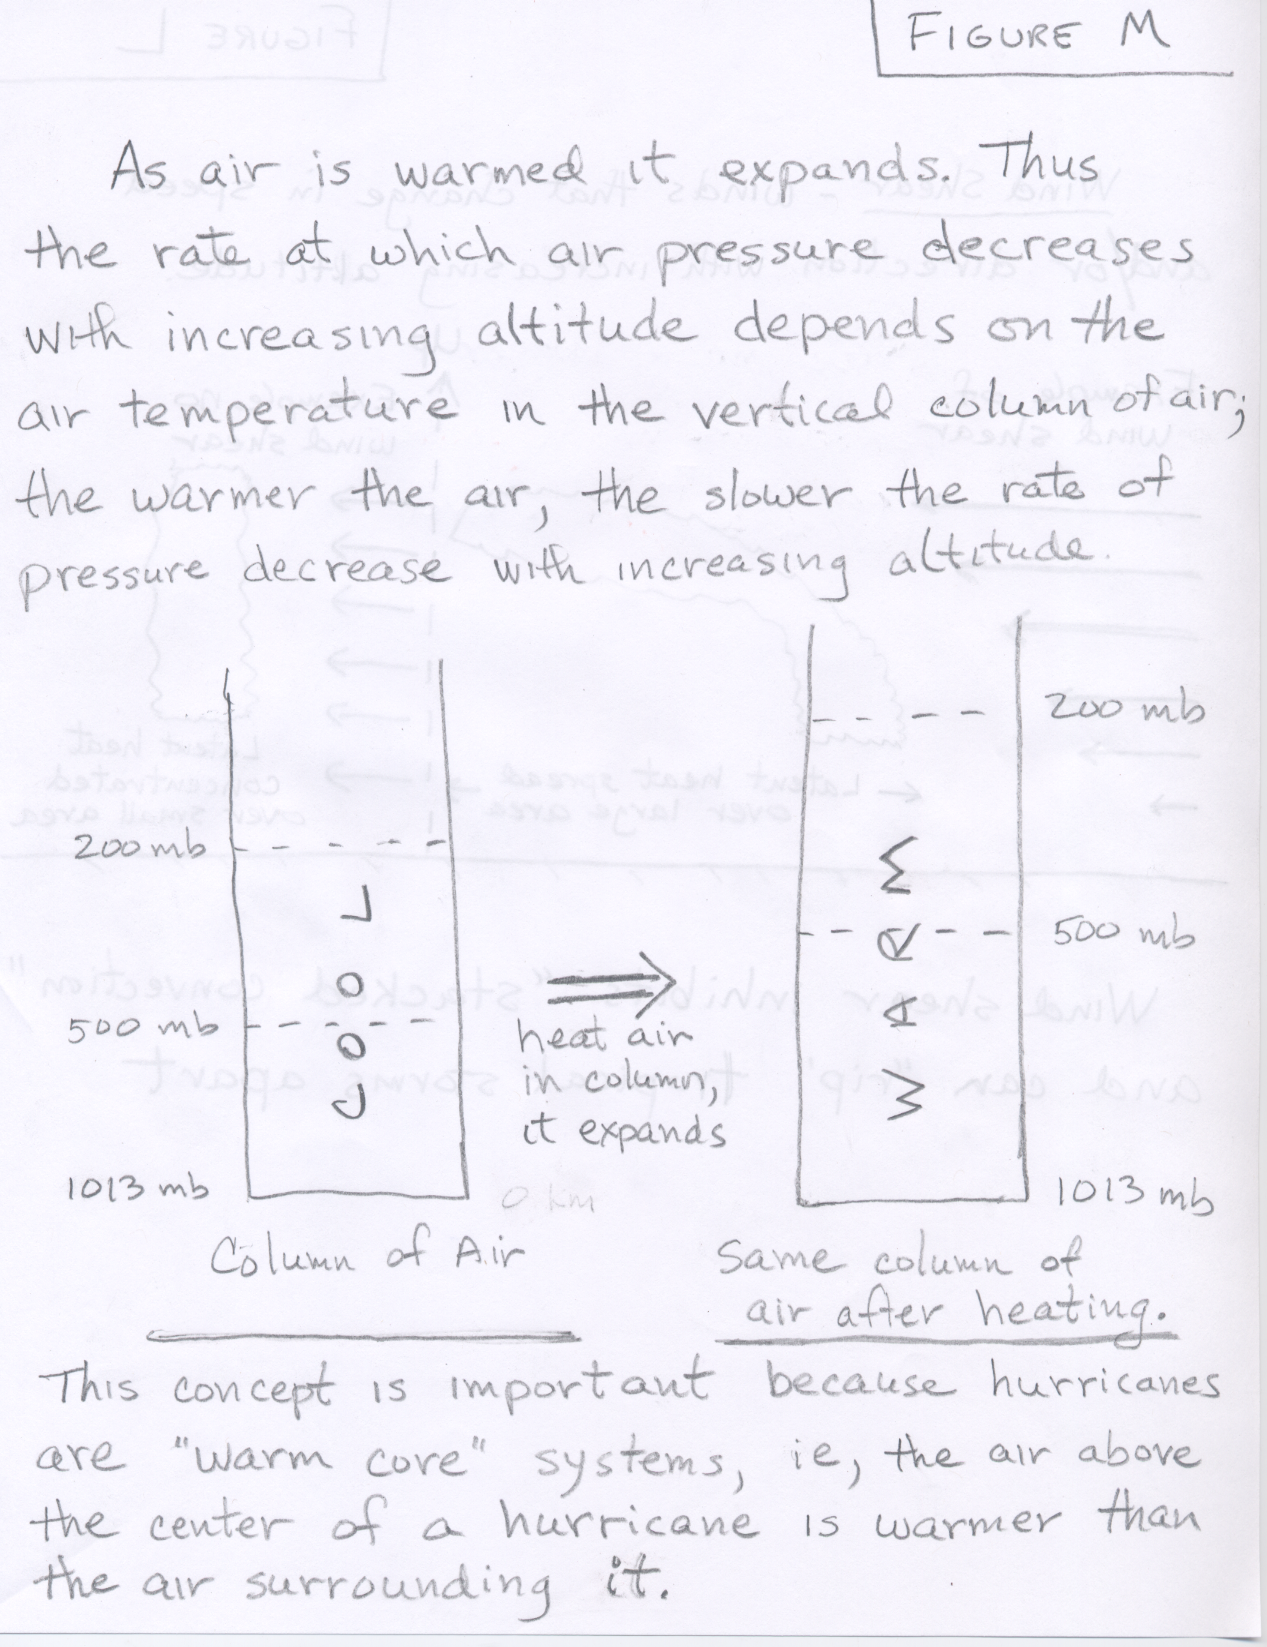 FIGURE M
As air is warmed it expands. Thus
the rate at which air pressure decreases
with increasing altitude depends on the
air temperature in the vertical column of air;
the warmer the air, the slower the rate of
pressure decrease with increasing altitude.
200 mb
500 mb
1013 mb
COOL
0 km
Column of Air
heat air
in column,
it expands
200 mb
500 mb
1013 mb
WARM
Same column of
air after heating.
This concept is important because hurricanes
are "warm core" systems, ie, the air above
the center of a hurricane is warmer than
the air surrounding it.